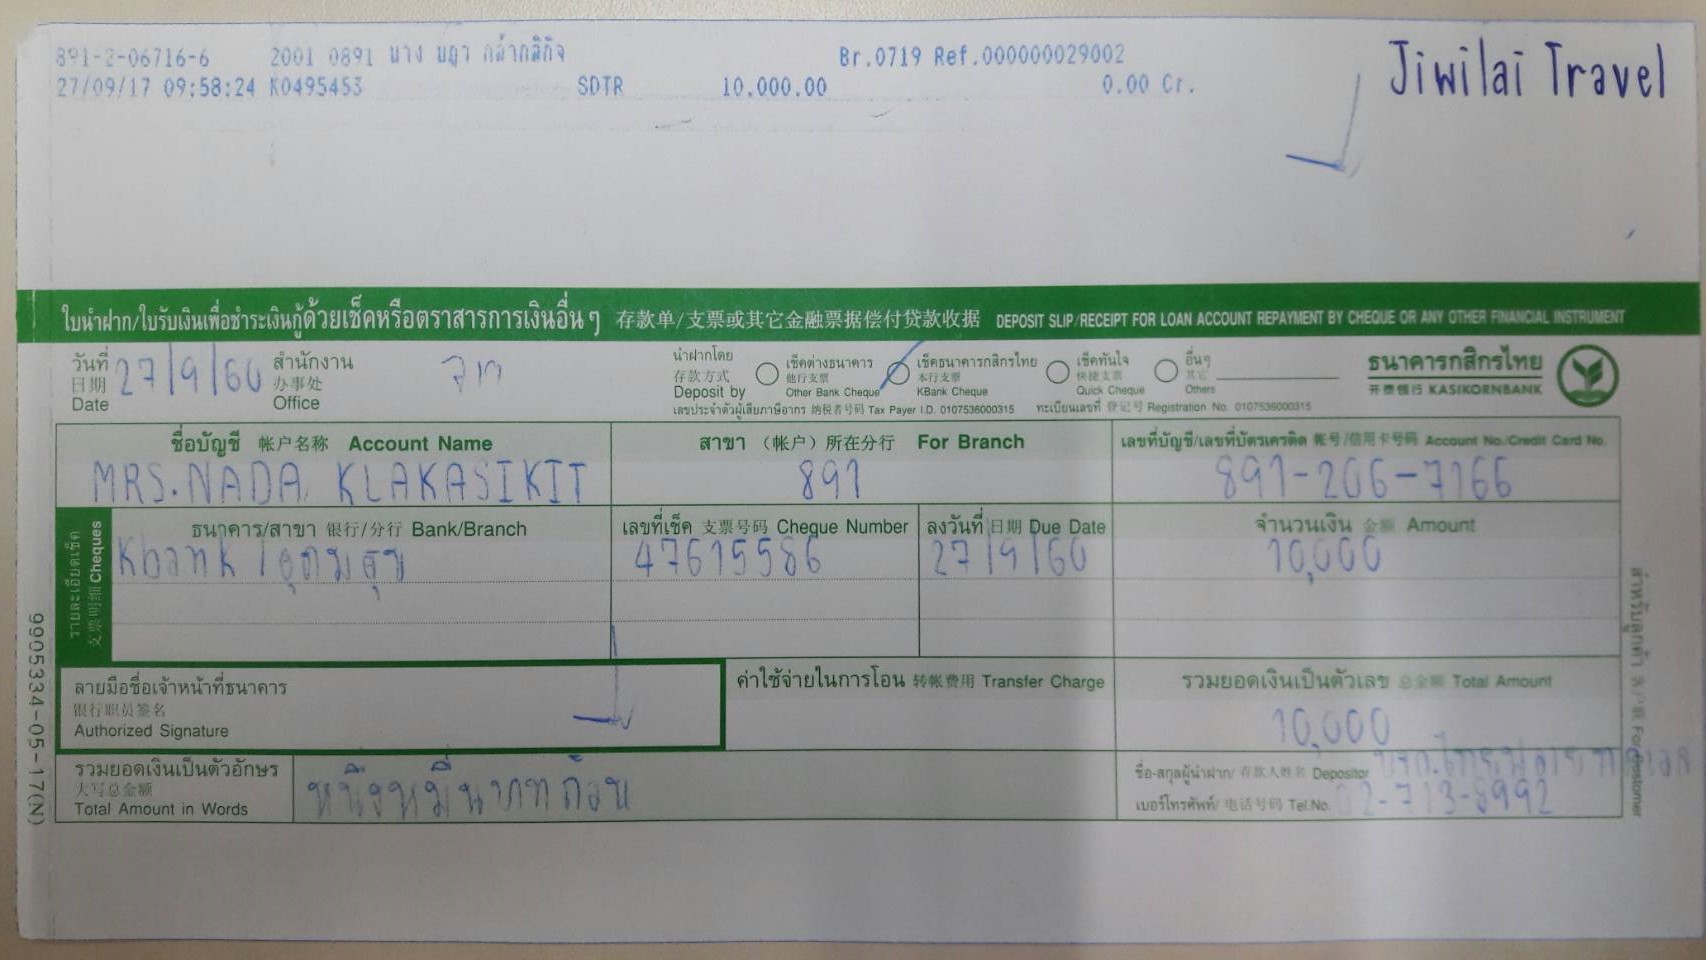 891-2-06716-6 2001 0891 นาง นฎา กล้ากสิกิจ Br.0719 Ref.000000029002
27/09/17 09:58:24 K0495453 SDTR 10.000.00 0.00 Cr.
Jiwilai Travel
ใบนำฝาก/ใบรับเงินเพื่อชำระเงินกู้ด้วยเช็คหรือตราสารการเงินอื่นๆ 存款单/支票或其它金融票据偿付贷款收据 DEPOSIT SLIP/RECEIPT FOR LOAN ACCOUNT REPAYMENT BY CHEQUE OR ANY OTHER FINANCIAL INSTRUMENT
วันที่ 日期 Date 27/9/60 สำนักงาน 办事处 Office
นำฝากโดย 存款方式 Deposit by
เช็คต่างธนาคาร 他行支票 Other Bank Cheque
เช็คธนาคารกสิกรไทย 本行支票 KBank Cheque
เช็คทันใจ 快捷支票 Quick Cheque
อื่นๆ 其它 Others
ธนาคารกสิกรไทย
开泰银行 KASIKORNBANK
เลขประจำตัวผู้เสียภาษีอากร 纳税者号码 Tax Payer I.D. 0107536000315 ทะเบียนเลขที่ 登记号 Registration No. 0107536000315
ชื่อบัญชี 帐户名称 Account Name
MRS.NADA KLAKASIKIT
สาขา (帐户) 所在分行 For Branch
891
เลขที่บัญชี/เลขที่บัตรเครดิต 帐号/信用卡号码 Account No./Credit Card No.
891-206-7166
รายละเอียดเช็ค
支票明细 Cheques
ธนาคาร/สาขา 银行/分行 Bank/Branch
Kbank / อุดมสุข
เลขที่เช็ค 支票号码 Cheque Number
47615586
ลงวันที่ 日期 Due Date
27/9/60
จำนวนเงิน 金额 Amount
10,000
ลายมือชื่อเจ้าหน้าที่ธนาคาร
银行职员签名
Authorized Signature
ค่าใช้จ่ายในการโอน 转帐费用 Transfer Charge
รวมยอดเงินเป็นตัวเลข 总金额 Total Amount
10,000
รวมยอดเงินเป็นตัวอักษร
大写总金额
Total Amount in Words
หนึ่งหมื่นบาทถ้วน
ชื่อ-สกุลผู้นำฝาก/ 存款人姓名 Depositor
เบอร์โทรศัพท์/ 电话号码 Tel.No. 02-713-8992
9905334-05-17(N)
สำหรับลูกค้า 客户联 For Customer